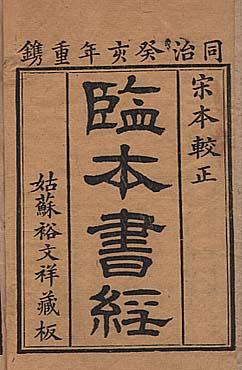 同治癸亥年重鐫
宋本較正
監本書經
姑蘇裕文祥藏板